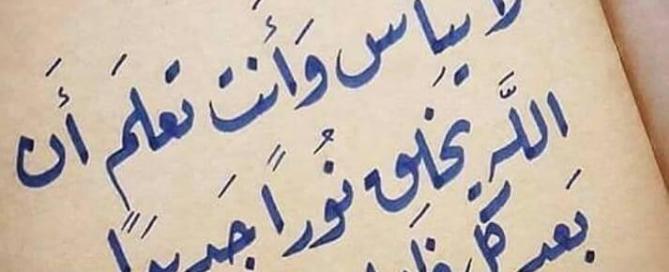 لا تيأس وَأنت تعلَم أَن
اللَّه يخلق نُوراً جَديدًا
بَعد كل